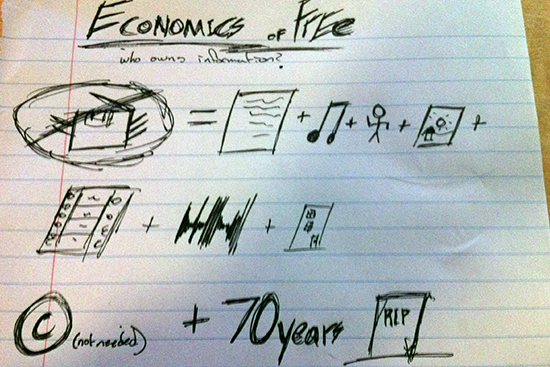 ECONOMICS OF FREE
who owns information?
= + + + +
+ +
© (not needed) + 70 years RIP